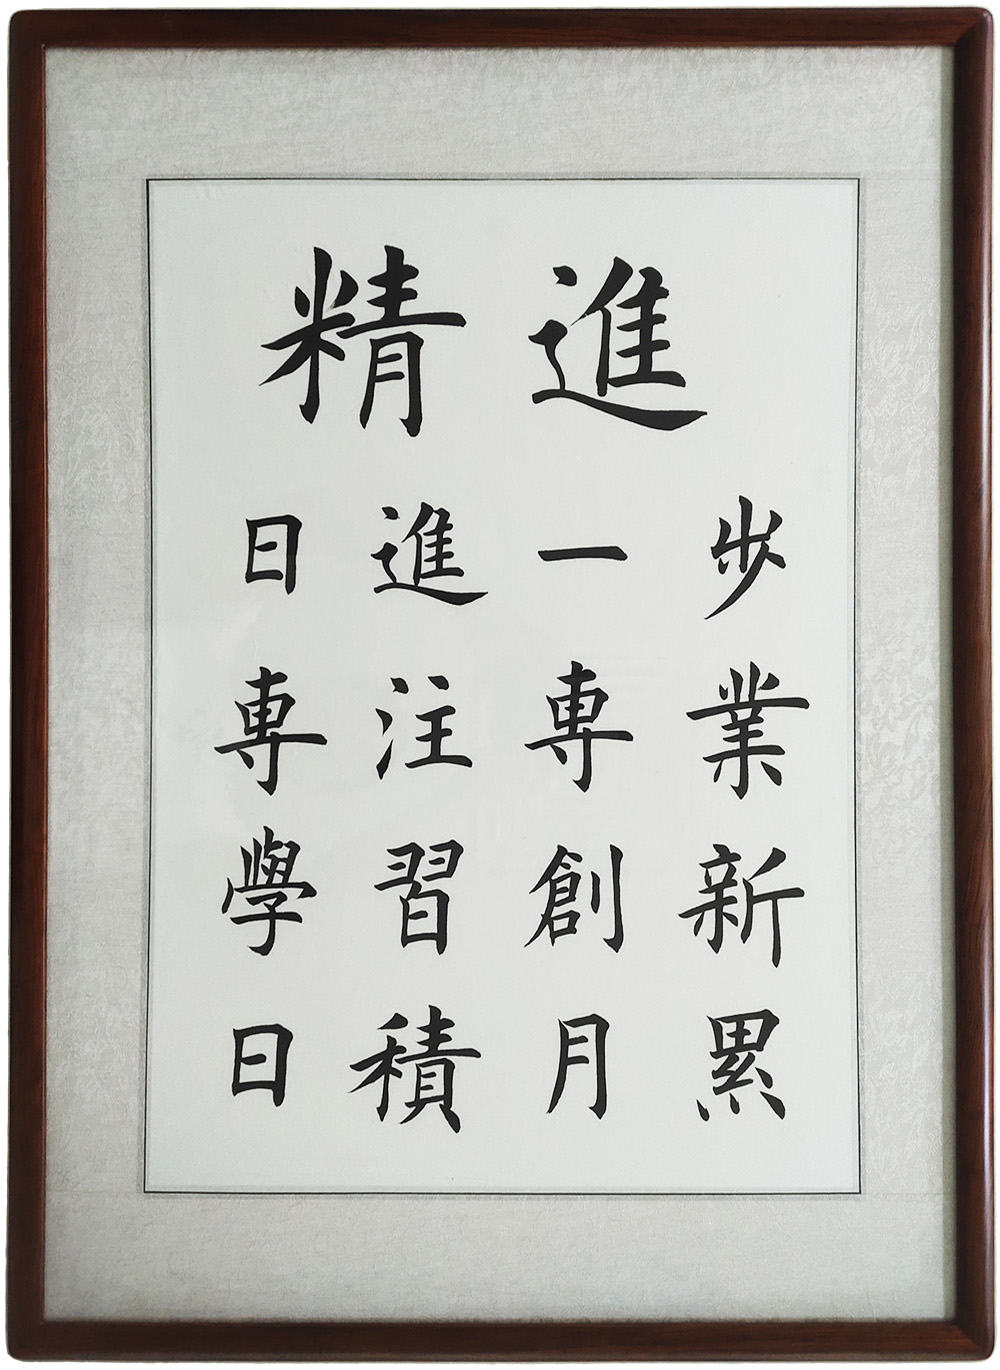 精進
日進一步
專注專業
學習創新
日積月累